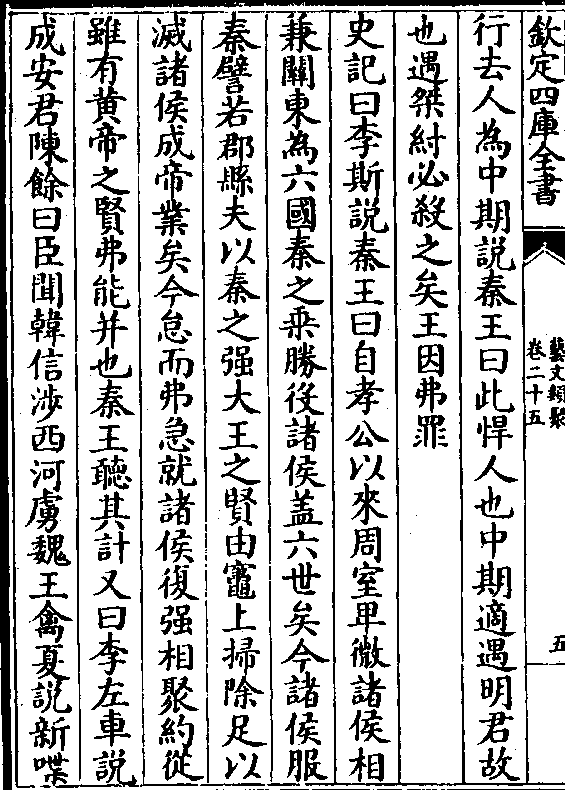 欽定四庫全書
藝文類聚
卷二十五
五
行去人為中期說秦王曰此悍人也中期適遇明君故
也遇桀紂必殺之矣王因弗罪
史記曰李斯說秦王曰自孝公以來周室卑微諸侯相
兼關東為六國秦之乘勝役諸侯蓋六世矣今諸侯服
秦譬若郡縣夫以秦之强大王之賢由竈上掃除足以
滅諸侯成帝業矣今怠而弗急就諸侯復强相聚約從
雖有黄帝之賢弗能并也秦王聽其計又曰李左車說
成安君陳餘曰臣聞韓信涉西河虜魏王禽夏說新喋